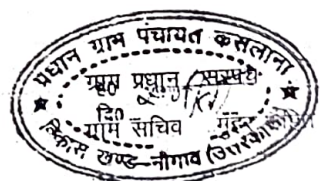 प्रधान ग्राम पंचायत कसलाना
ग्राम प्रधान सरपंच
दि0
ग्राम सचिव
विकास खण्ड-नौगाव (उत्तरकाशी)